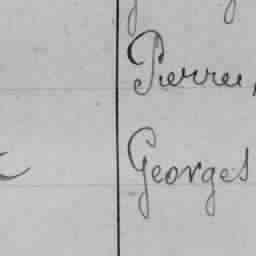 Pierre,
Georges